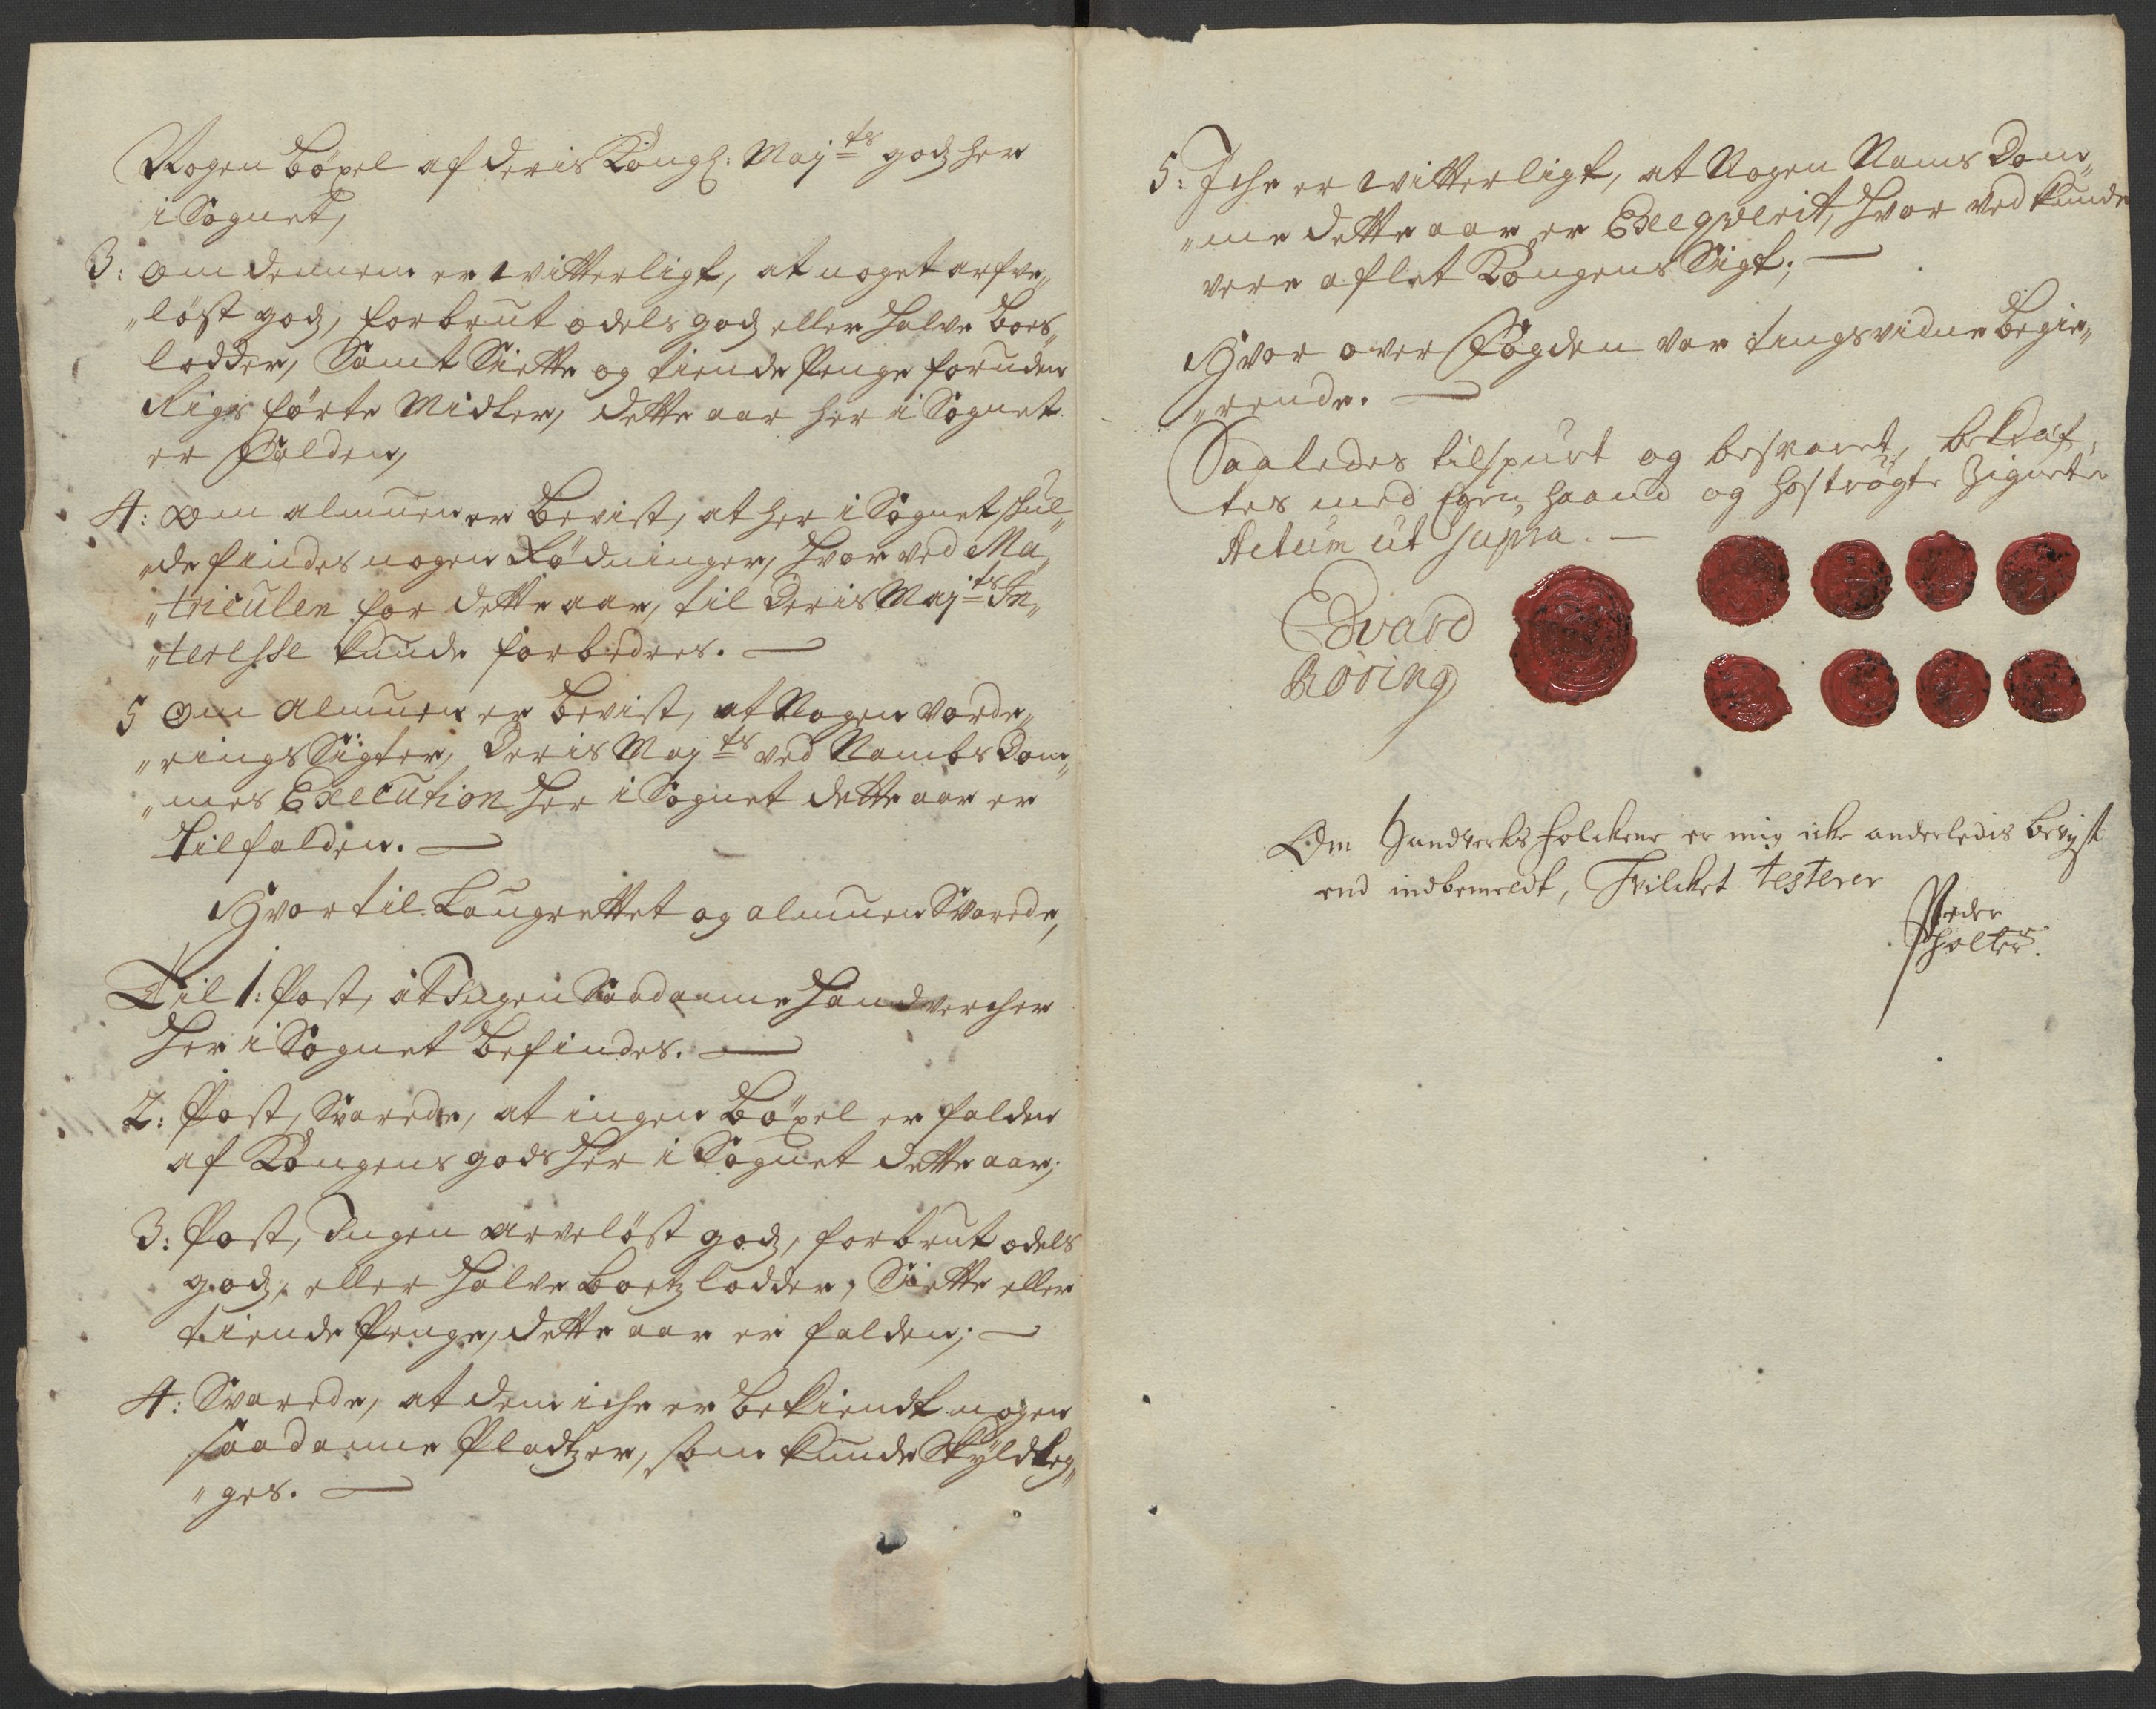 Nogen böxel af deris Kongl: Maj:ts godz her
i Sognet,
3: om dennem er witterligt, at noget arfve„
„löst godz, forbrut odels godz eller halve boes„
lodder, Samt Siette og tiende Penge foruden
Rigs förte Midler, dette aar her i Sognet
er falden,
4: om almuen er bevist, at her i Sognet skul„
„de findes nogen Rödninger, hvor ved Ma„
„triculen for dette aar, til Deris Maj:ts In„
„teresse kunde forbedres. —
5 Om Almuen er bevist, at Nogen vorde„
„rings Sigter, Deris Maj:ts ved Nambs Dom„
„mes Execution her i Sognet dette aar er
tilfalden. —
Hvortil Laugrettet og almuen Svarede,
Til 1: Post, at Ingen Saadanne Handvercher
her i Sognet befindes. —
2: Post, Svarede, at ingen Böxel er falden
af Kongens gods her i Sognet dette aar;
3: Post, Ingen arvelöst godz, forbrut odels
godz, eller halve boetz lodder, Siette eller
tiende Penge, dette aar er falden; —
4: Svarede, at dem iche er bekiendt nogen
saadanne Pladtzer, som kunde Skyldleg„
„ges. —
5: Iche er witterligt, at Nogen Nams Dom„
„me dette aar er Exeqverit, hvor ved kunde
vere aflet Kongens Sigt; —
Hvor over Fogden var tingsvidne begie„
„rende. —
Saaledes tilspurt og besvaret, bekraf„
tes med Egen haand og hoströgte Zigneter
Actum ut supra. —
Edvard
Röring
Om Handverks folckene er mig icke anderledis bevist
end indbemeldt, Hvilcket testerer
Peder
Holter.